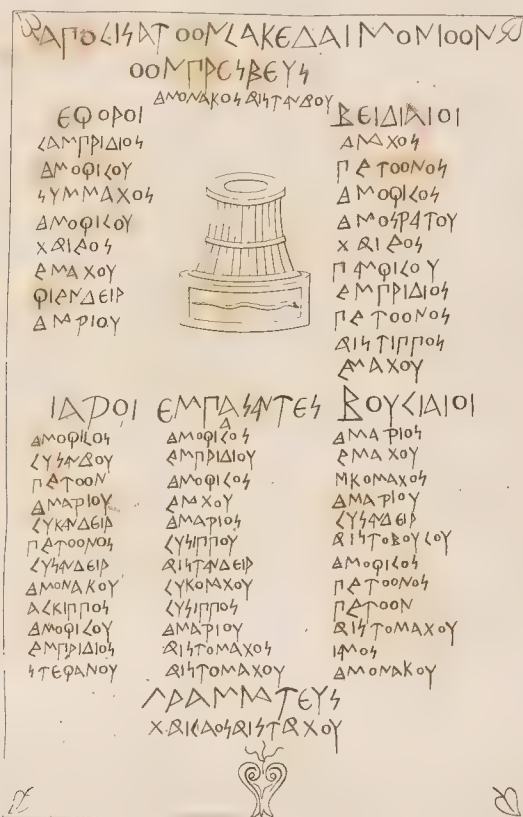 ΑΠΟΛΙΣΑΤΟΟΝΛΑΚΕΔΑΙΜΟΝΙΟΟΝ
ΟΟΜΠΡΕΣΒΕΥΣ
ΔΑΜΟΝΑΚΟΣ ΑΡΙΣΤΑΝΔΡΟΥ
ΕΦΟΡΟΙ
ΛΑΜΠΡΙΔΙΟΣ
ΔΑΜΟΦΙΛΟΥ
ΣΥΜΜΑΧΟΣ
ΔΑΜΟΦΙΛΟΥ
ΧΑΡΙΛΑΟΣ
ΛΑΜΑΧΟΥ
ΦΙΛΑΝΔΕΙΡ
ΔΑΜΑΡΙΟΥ
ΒΕΙΔΙΑΙΟΙ
ΛΑΜΑΧΟΣ
ΠΛΑΤΟΟΝΟΣ
ΔΑΜΟΦΙΛΟΣ
ΔΑΜΟΣΡΑΤΟΥ
ΧΑΡΙΛΑΟΣ
ΠΑΜΦΙΛΟΥ
ΛΑΜΠΡΙΔΙΟΣ
ΠΛΑΤΟΟΝΟΣ
ΑΡΙΣΤΙΠΠΟΣ
ΛΑΜΑΧΟΥ
ΙΑΡΟΙ
ΔΑΜΟΦΙΛΟΣ
ΛΥΣΑΝΔΡΟΥ
ΠΛΑΤΟΟΝ
ΔΑΜΑΡΙΟΥ
ΛΥΚΑΝΔΕΙΡ
ΠΛΑΤΟΟΝΟΣ
ΛΥΣΑΝΔΕΙΡ
ΔΑΜΟΝΑΚΟΥ
ΑΛΚΙΠΠΟΣ
ΔΑΜΟΦΙΛΟΥ
ΛΑΜΠΡΙΔΙΟΣ
ΣΤΕΦΑΝΟΥ
ΕΜΠΑΣΑΝΤΕΣ
ΔΑΜΟΦΙΛΟΣ
ΛΑΜΠΡΙΔΙΟΥ
ΔΑΜΟΦΙΛΟΣ
ΛΑΜΑΧΟΥ
ΔΑΜΑΡΙΟΣ
ΛΥΣΙΠΠΟΥ
ΑΡΙΣΤΑΝΔΕΙΡ
ΛΥΚΟΜΑΧΟΥ
ΛΥΣΙΠΠΟΣ
ΔΑΜΑΡΙΟΥ
ΑΡΙΣΤΟΜΑΧΟΣ
ΑΡΙΣΤΟΜΑΧΟΥ
ΒΟΥΛΙΑΙΟΙ
ΔΑΜΑΡΙΟΣ
ΛΑΜΑΧΟΥ
ΝΙΚΟΜΑΧΟΣ
ΔΑΜΑΡΙΟΥ
ΛΥΣΑΝΔΕΙΡ
ΑΡΙΣΤΟΒΟΥΛΟΥ
ΔΑΜΟΦΙΛΟΣ
ΠΛΑΤΟΟΝΟΣ
ΠΛΑΤΟΟΝ
ΑΡΙΣΤΟΜΑΧΟΥ
ΔΑΜΟΝΑΚΟΥ
ΓΡΑΜΜΑΤΕΥΣ
ΧΑΡΙΛΑΟΣΑΡΙΣΤΑΡΧΟΥ